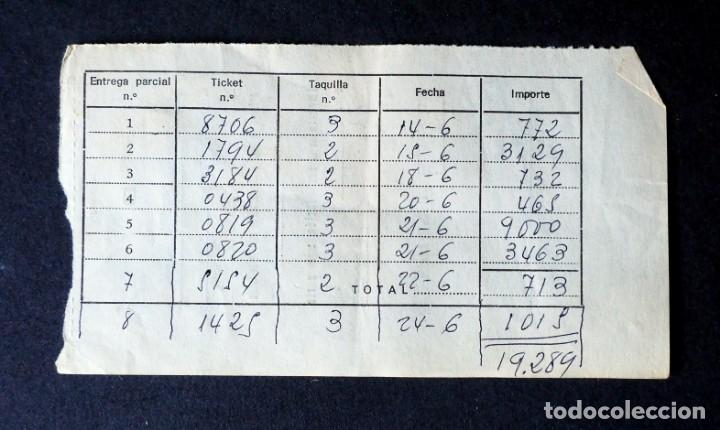 Entrega parcial n.º Ticket n.º Taquilla n.º Fecha Importe
1 8706 3 14-6 772
2 1794 2 15-6 3129
3 3184 2 18-6 732
4 0438 3 20-6 465
5 0819 3 21-6 9000
6 0820 3 21-6 3463
7 5154 2 TOTAL 22-6 713
8 1425 3 24-6 1015
19.289
todocoleccion